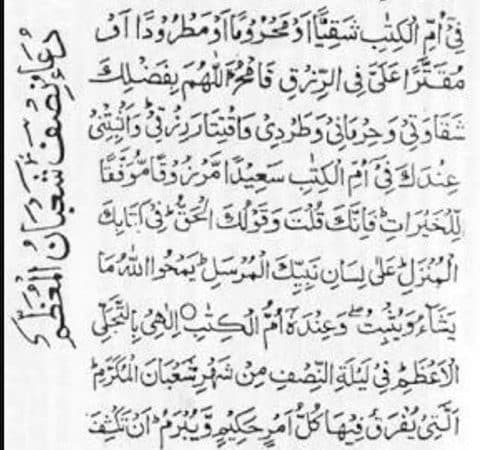 فِيْٓ اُمِّ الْكِتٰبِ شَقِيًّا اَوْ مَحْرُوْمًا اَوْ مَطْرُوْدًا اَوْ
مُقَتَّرًا عَلَيَّ فِي الرِّزْقِ فَامْحُ اَللّٰهُمَّ بِفَضْلِكَ
شَقَاوَتِيْ وَحِرْمَانِيْ وَطَرْدِيْ وَاقْتِتَارَ رِزْقِيْ وَاَثْبِتْنِيْ
عِنْدَكَ فِيْٓ اُمِّ الْكِتٰبِ سَعِيْدًا مَّرْزُوْقًا مُّوَفَّقًا
لِّلْخَيْرَاتِ ؕ فَاِنَّكَ قُلْتَ وَقَوْلُكَ الْحَقُّ ؕ فِيْ كِتَابِكَ
الْمُنَزَّلِ ؕ عَلٰى لِسَانِ نَبِيِّكَ الْمُرْسَلِ ؕ يَمْحُوا اللّٰهُ مَا
يَشَآءُ وَيُثْبِتُ ۖ وَعِنْدَهٗٓ اُمُّ الْكِتٰبِ ○ اِلٰهِيْ بِالتَّجَلِّيْ
الْاَعْظَمِ ؕ فِيْ لَيْلَةِ النِّصْفِ مِنْ شَهْرِ شَعْبَانَ الْمُكَرَّمِ ؕ
الَّتِيْ يُفْرَقُ فِيْهَا كُلُّ اَمْرٍ حَكِيْمٍ وَّيُبْرَمُ ؕ اَنْ تَكْشِفَ
دعاء نصف شعبان المعظم